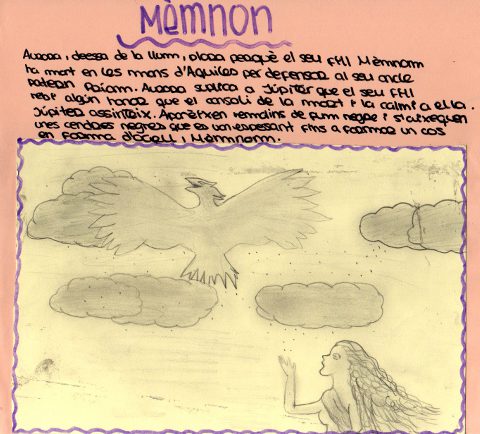 Mèmnon
Aurora, deessa de la llum, plora perquè el seu fill Mèmnom
ha mort en les mans d'Aquiles per defensar al seu oncle
patern Príam. Aurora suplica a Júpiter que el seu fill
rebi algún honor que el consoli de la mort i la calmi a ella.
Júpiter assinteix. Apareixen remolins de fum negre i s'aixequen
unes cendres negres que es van espessant fins a formar un cos
en forma d'ocell, Mèmnom.